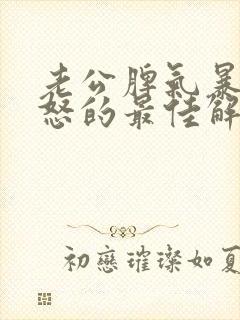 老公脾气暴
怒的最佳解
初戀璀璨如夏